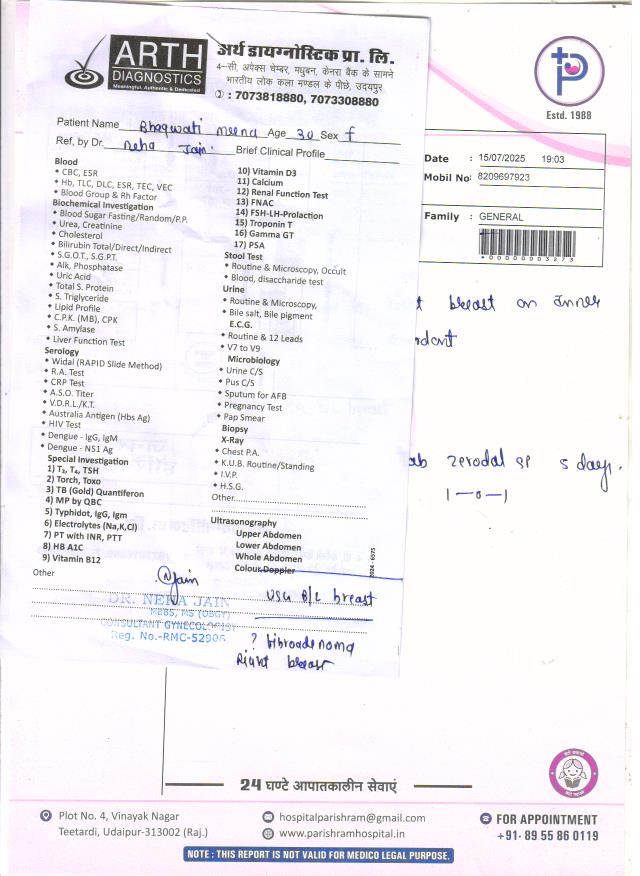 ARTH
DIAGNOSTICS
Meaningful, Authentic & Dedicated
अर्थ डायग्नोस्टिक प्रा. लि.
4-सी, अपेक्स चेम्बर, मधुबन, केनरा बैंक के सामने
भारतीय लोक कला मण्डल के पीछे, उदयपुर
: 7073818880, 7073308880
Patient Name Bhagwati meena Age 30 Sex f
Ref, by Dr. Neha Jain Brief Clinical Profile
Blood
• CBC, ESR
• Hb, TLC, DLC, ESR, TEC, VEC
• Blood Group & Rh Factor
Biochemical Investigation
• Blood Sugar Fasting/Random/P.P.
• Urea, Creatinine
• Cholesterol
• Bilirubin Total/Direct/Indirect
• S.G.O.T., S.G.P.T.
• Alk, Phosphatase
• Uric Acid
• Total S. Protein
• S. Triglyceride
• Lipid Profile
• C.P.K. (MB), CPK
• S. Amylase
• Liver Function Test
Serology
• Widal (RAPID Slide Method)
• R.A. Test
• CRP Test
• A.S.O. Titer
• V.D.R.L./K.T.
• Australia Antigen (Hbs Ag)
• HIV Test
• Dengue - IgG, IgM
• Dengue - NS1 Ag
Special Investigation
1) T₃, T₄, TSH
2) Torch, Toxo
3) TB (Gold) Quantiferon
4) MP by QBC
5) Typhidot, IgG, Igm
6) Electrolytes (Na,K,Cl)
7) PT with INR, PTT
8) HB A1C
9) Vitamin B12
Other
10) Vitamin D3
11) Calcium
12) Renal Function Test
13) FNAC
14) FSH-LH-Prolaction
15) Troponin T
16) Gamma GT
17) PSA
Stool Test
• Routine & Microscopy, Occult
• Blood, disaccharide test
Urine
• Routine & Microscopy,
• Bile salt, Bile pigment
E.C.G.
• Routine & 12 Leads
• V7 to V9
Microbiology
• Urine C/S
• Pus C/S
• Sputum for AFB
• Pregnancy Test
• Pap Smear
Biopsy
X-Ray
• Chest P.A.
• K.U.B. Routine/Standing
• I.V.P.
• H.S.G.
Other
Ultrasonography
Upper Abdomen
Lower Abdomen
Whole Abdomen
Colour Doppler
2024 - 6575
Njain
DR. NEHA JAIN
MBBS, MS (OBGY)
CONSULTANT GYNECOLOGISY
Reg. No.-RMC-52906
USG B/L breast
? fibroadenoma
Right breast
Estd. 1988
Date : 15/07/2025 19:03
Mobil No: 8209697923
Family : GENERAL
*00000003273
t breast on inner
rdant
ab zerodol sp 5 days.
1-0-1
24 घण्टे आपातकालीन सेवाएं
Plot No. 4, Vinayak Nagar
Teetardi, Udaipur-313002 (Raj.)
hospitalparishram@gmail.com
www.parishramhospital.in
FOR APPOINTMENT
+91- 89 55 86 0119
NOTE : THIS REPORT IS NOT VALID FOR MEDICO LEGAL PURPOSE.